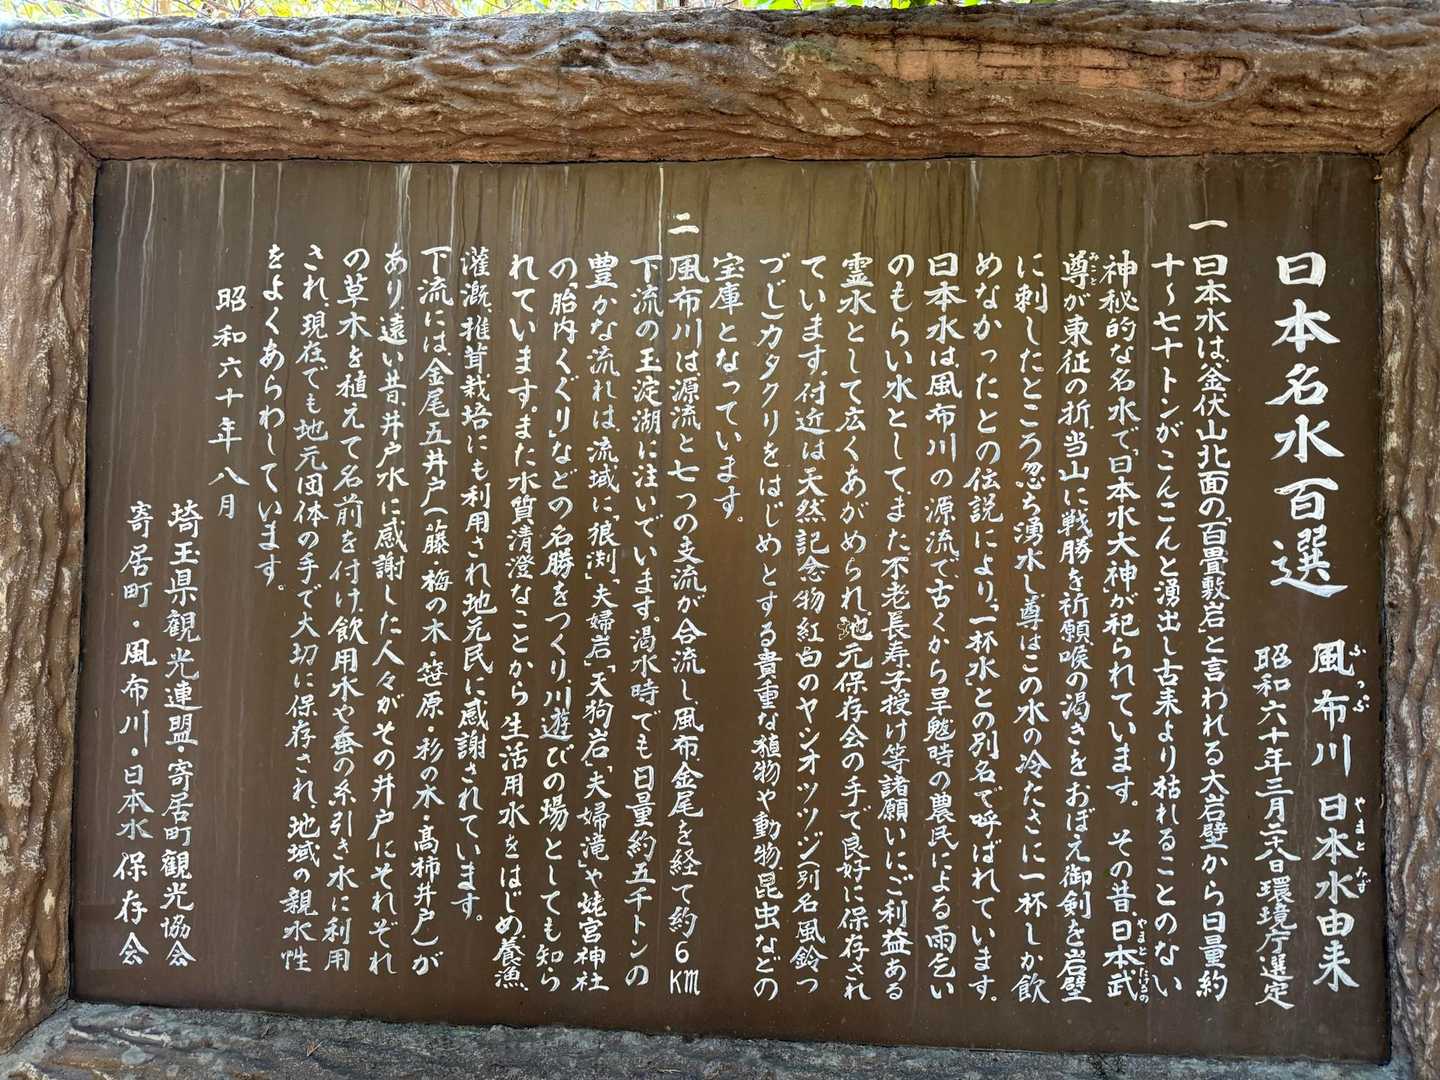 日本名水百選
風布川 日本水由来
昭和六十年三月二十八日環境庁選定
一 日本水は、釜伏山北面の「百畳敷岩」と言われる大岩壁から日量約
十〜七十トンがこんこんと湧出し古来より枯れることのない
神秘的な名水で「日本水大神」が祀られています。 その昔、日本武
尊が東征の折、当山に戦勝を祈願喉の渇きをおぼえ御剣を岩壁
に刺したところ忽ち湧水し尊はこの水の冷たさに一杯しか飲
めなかったとの伝説により、「一杯水」との別名で呼ばれています。
日本水は、風布川の源流で、古くから旱魃時の農民による雨乞い
のもらい水として、また不老長寿子授け等諸願いにご利益ある
霊水として広くあがめられ、地元保存会の手で良好に保存され
ています。付近は天然記念物紅白のヤシオツツジ(別名風鈴つ
つじ)カタクリをはじめとする貴重な植物や動物、昆虫などの
宝庫となっています。
二 風布川は源流と七つの支流が合流し風布金尾を経て約6km
下流の玉淀湖に注いでいます。渇水時でも日量約五千トンの
豊かな流れは、流域に「狼渕」「夫婦岩」「天狗岩」「夫婦滝」や姥宮神社
の「胎内くぐり」などの名勝をつくり川遊びの場としても知ら
れています。また水質清澄なことから生活用水をはじめ養漁、
灌漑、椎茸栽培にも利用され地元民に感謝されています。
下流には、金尾五井戸(藤・梅の木・笹原・杉の木・高柿井戸)が
あり、遠い昔、井戸水に感謝した人々がその井戸にそれぞれ
の草木を植えて名前を付け、飲用水や蚕の糸引き水に利用
され、現在でも地元団体の手で大切に保存され、地域の親水性
をよくあらわしています。
昭和六十年八月
埼玉県観光連盟・寄居町観光協会
寄居町・風布川・日本水保存会